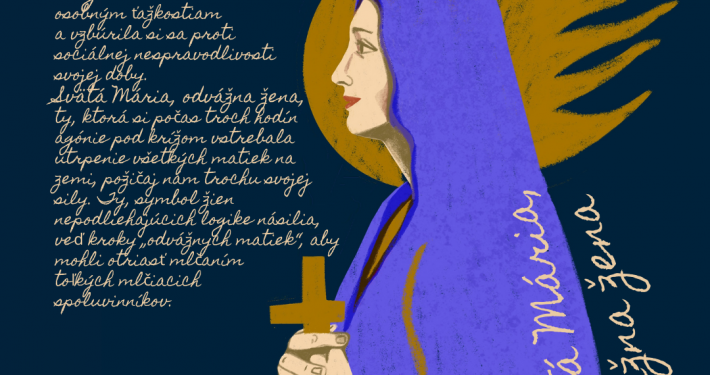 osobným ťažkostiam
a vzbúrila si sa proti
sociálnej nespravodlivosti
svojej doby.
Svätá Mária, odvážna žena,
ty, ktorá si počas troch hodín
agónie pod krížom vstrebala
utrpenie všetkých matiek na
zemi, požičaj nám trochu svojej
sily. Ty, symbol žien
nepodliehajúcich logike násilia,
veď kroky „odvážnych matiek“, aby
mohli otriasť mlčaním
toľkých mlčiacich
spoluvinníkov.
tá Mária,
žna žena